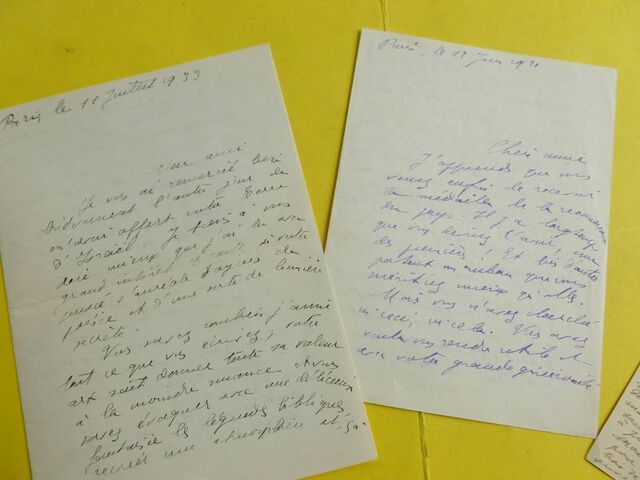 Paris le 11 Juillet 1933
Cher ami
Je vous ai remercié bien
brièvement l'autre jour de
m'avoir offert votre Terre
d'Israël. Je tiens à vous
dire mieux que j'ai lu avec
grand intérêt et votre
pensée s'auréole toujours de
poésie et d'une sorte de lumière
secrète.
Vous savez combien j'aime
tout ce que vous écrivez, votre
art sait donner toute sa valeur
à la moindre nuance et vous
savez évoquer avec une délicieuse
fantaisie les légendes bibliques,
recréer une atmosphère et
Paris, le 12 Juin
Chère amie
J'apprends que vous
venez enfin de recevoir
la médaille de la reconnaissance
du pays. Il y a longtemps
que vous deviez l'avoir, une
des premières! Et d'autres
portent un ruban que vous
méritiez mieux qu'elles.
Mais vous n'avez cherché
ni ceci, ni cela. Vous avez
voulu vous rendre utile
avec votre grande générosité